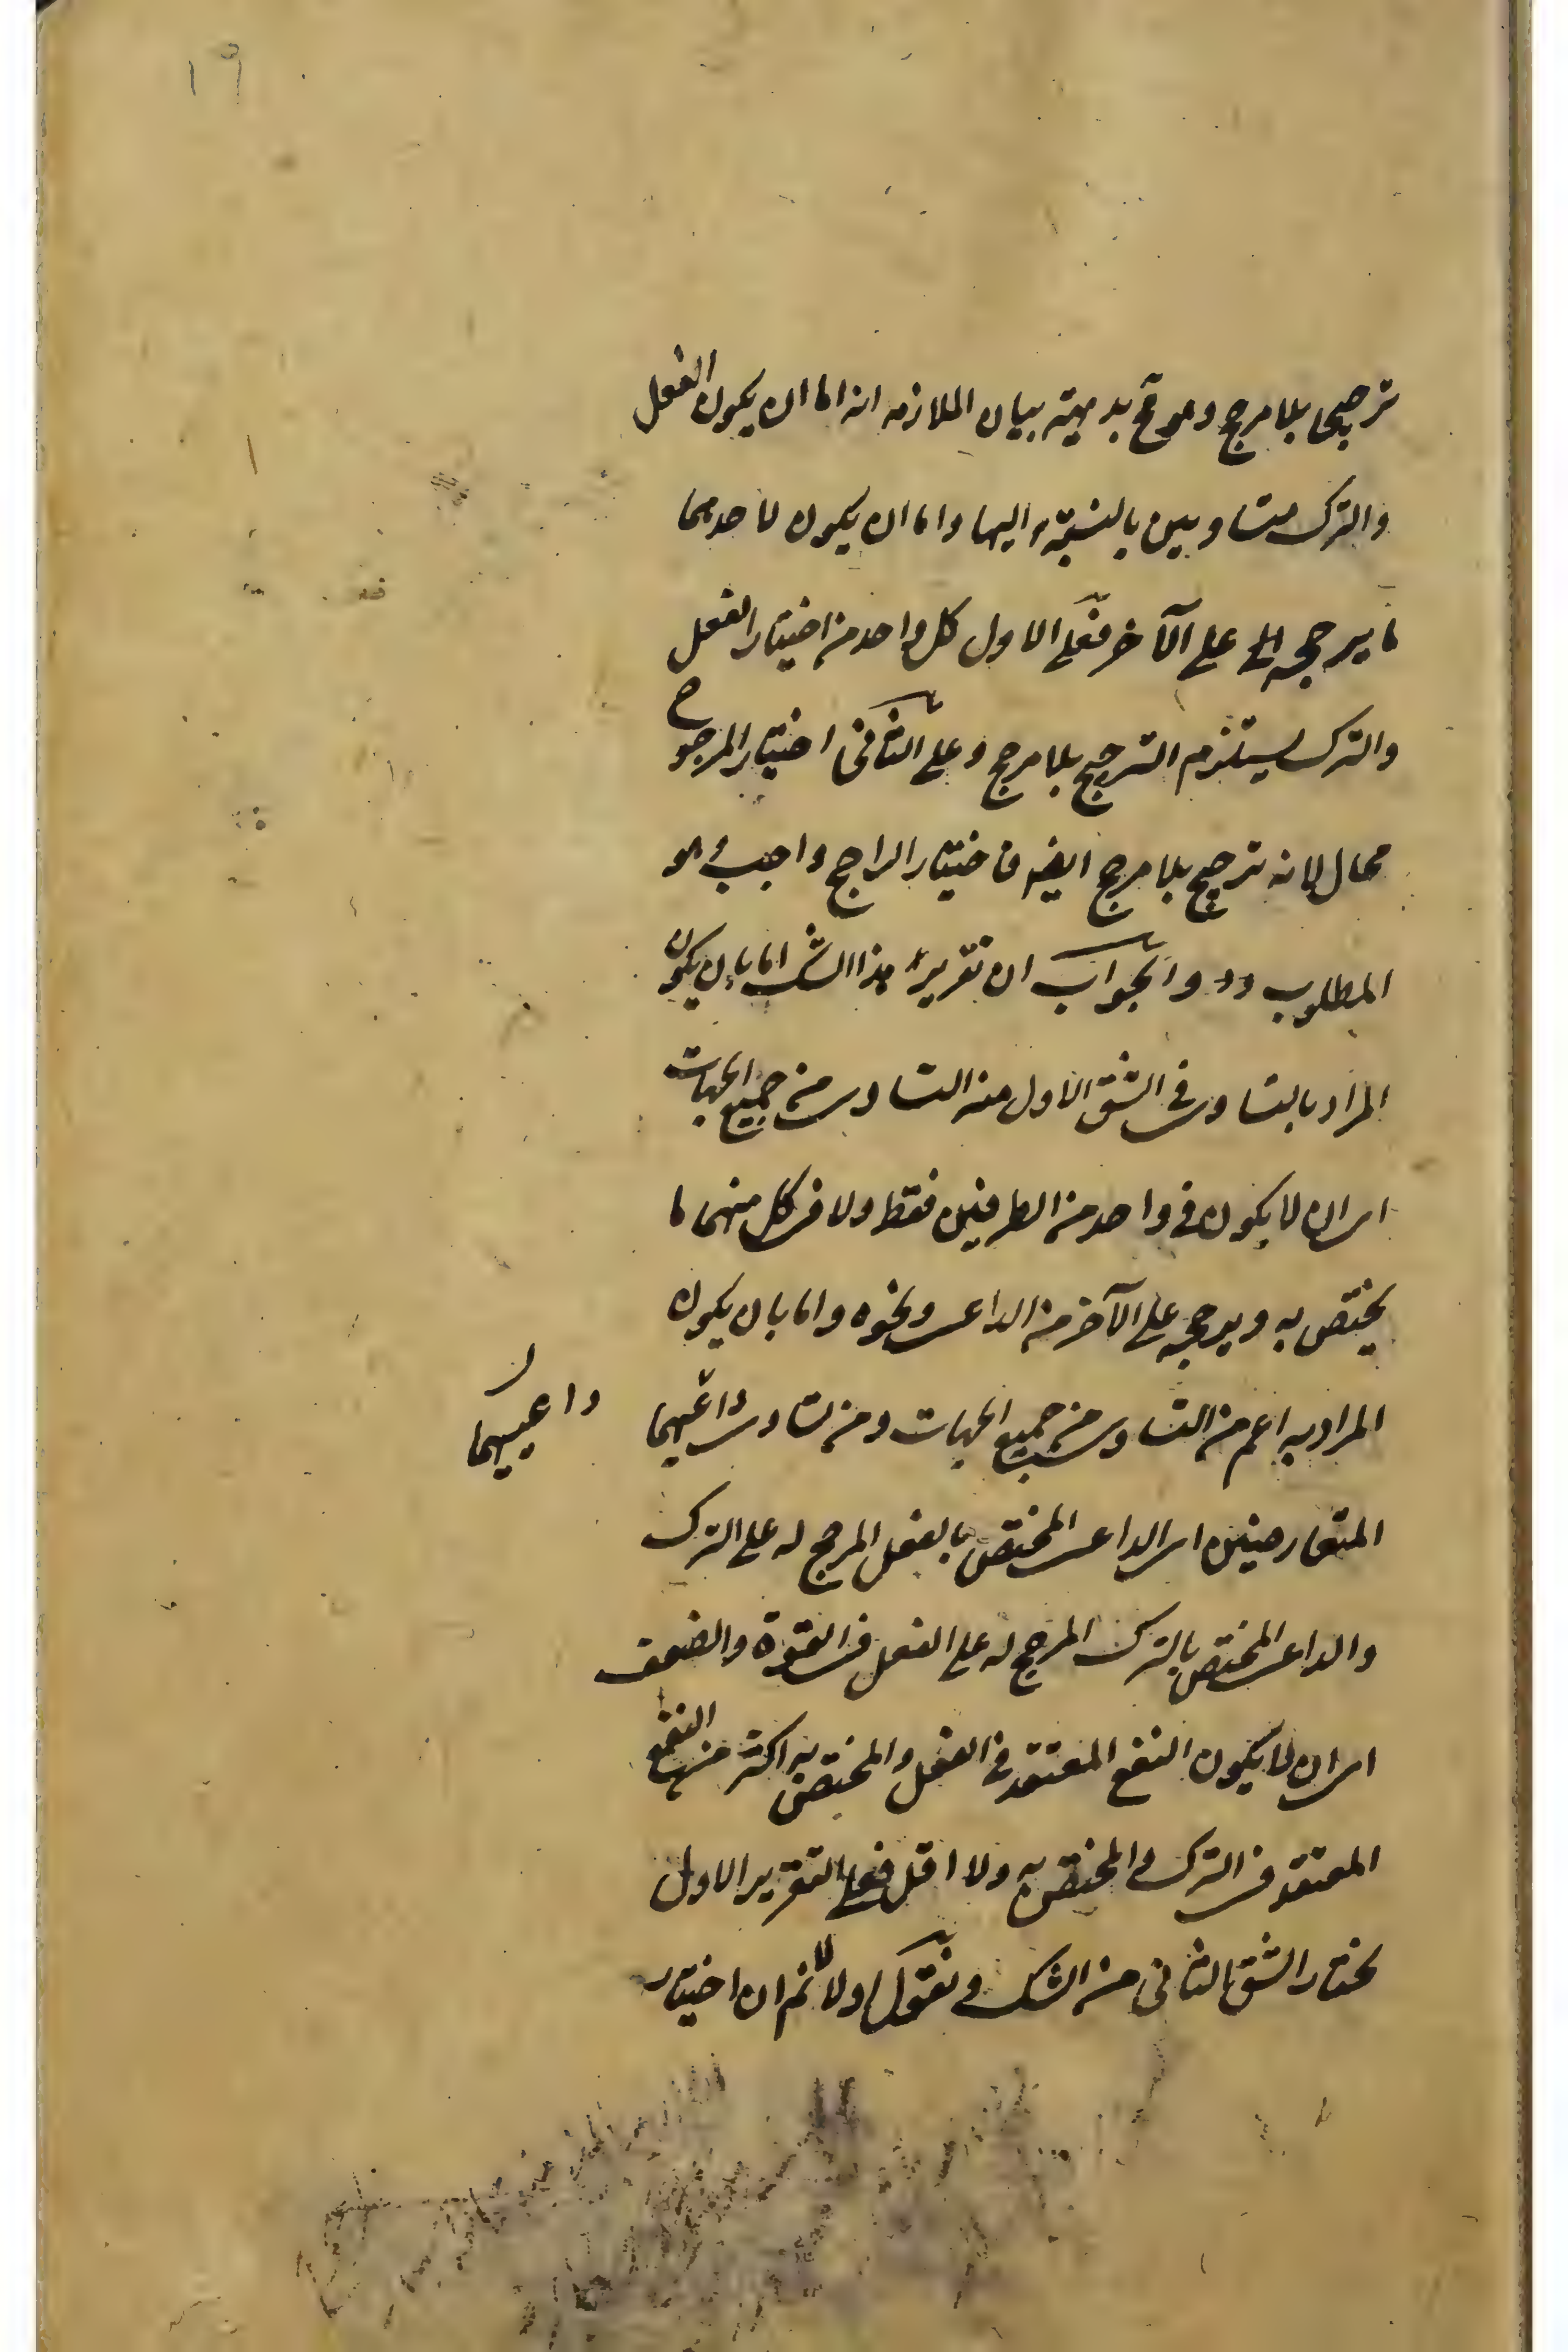 ١٩
ترجيحا بلا مرجح وهو مح بديهة بيان الملازمه انه اما ان يكون الفعل
والترك متساويين بالنسبة اليها واما ان يكون لاحدهما
ما يرجحه على الآخر فعلى الاول كل واحد من اختيار الفعل
والترك يستلزم الترجيح بلا مرجح وعلى الثانى اختيار المرجوح
محال لانه ترجيح بلا مرجح ايضه فاختيار الراجح واجب وهو
المطلوب والجواب ان تقرير هذا الشك اما بان يكون
المراد بالتساوى فى الشق الاول منه التساوى من جميع الجهات
اى ان لا يكون فى واحد من الطرفين فقط ولا فى كل منهما ما
يختص به ويرجحه على الآخر من الداعى ونحوه واما بان يكون
المراد به اعم من التساوى من جميع الجهات ومن تساوى داعيهما
داعييهما ل
المتعارضين اى الداعى المختص بالفعل المرجح له على الترك
والداعى المختص بالترك المرجح له على الفعل فى القوة والضعف
اى ان لا يكون النفع المعتقد فى الفعل والمختص به اكثر من النفع
المعتقد فى الترك والمختص به ولا اقل فعلى التقرير الاول
نختار الشق الثانى من الشك ونقول اولا لانم ان اختيار